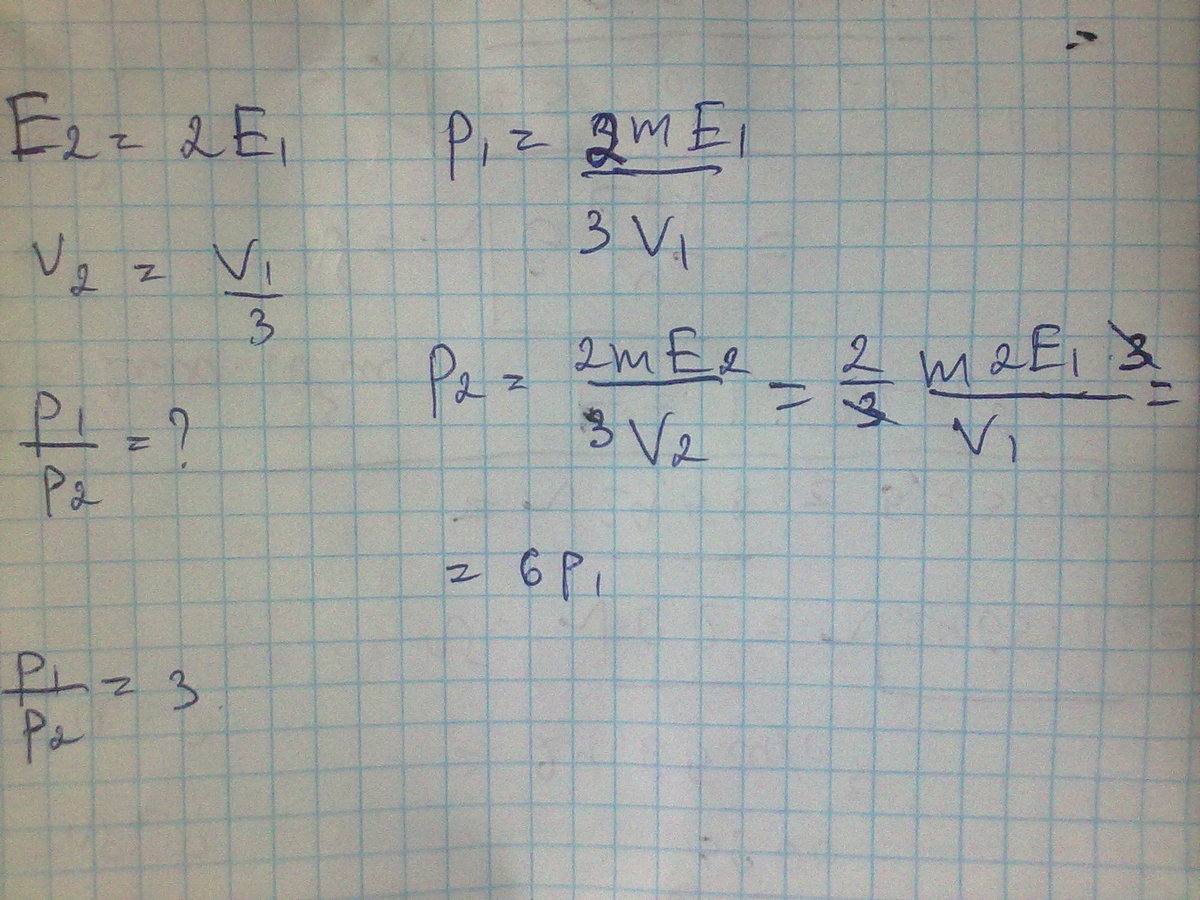 E₂ = 2E₁
V₂ = V₁/3
p₁/p₂ = ?
p₁/p₂ = 3
p₁ = 2mE₁/3V₁
p₂ = 2mE₂/3V₂ = 2/3 m2E₁3/V₁ =
= 6p₁